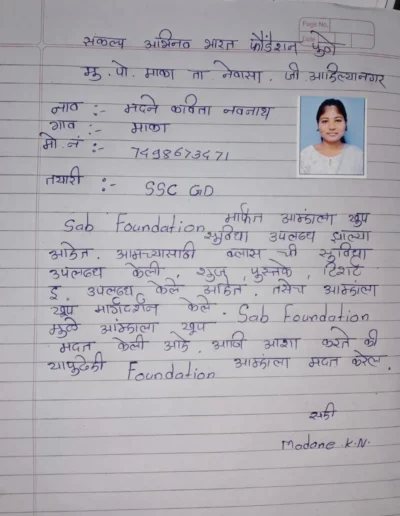 Page No.
Date
संकल्प अभिनव भारत फौंडेशन पुणे
मु. पो. माका ता. नेवासा. जी आहिल्यानगर
नाव :- मदने कविता नवनाथ
गाव :- माका
मो. नं :- 7498673471
तयारी :- SSC GD
Sab Foundation मार्फत आम्हांला खुप
सुविधा उपलब्ध झाल्या
आहेत. आमच्यासाठी क्लास ची सुविधा
उपलब्ध केली, शुज, पुस्तके, टिशर्ट
इ. उपलब्ध केले आहेत. तसेच आम्हांला
खुप मार्गदर्शन केले. Sab Foundation
मुळे आम्हांला खुप
मदत केली आहे. आणि आशा करते की
यापुढेही Foundation आम्हांला मदत करेल.
सही
Madane K.N.